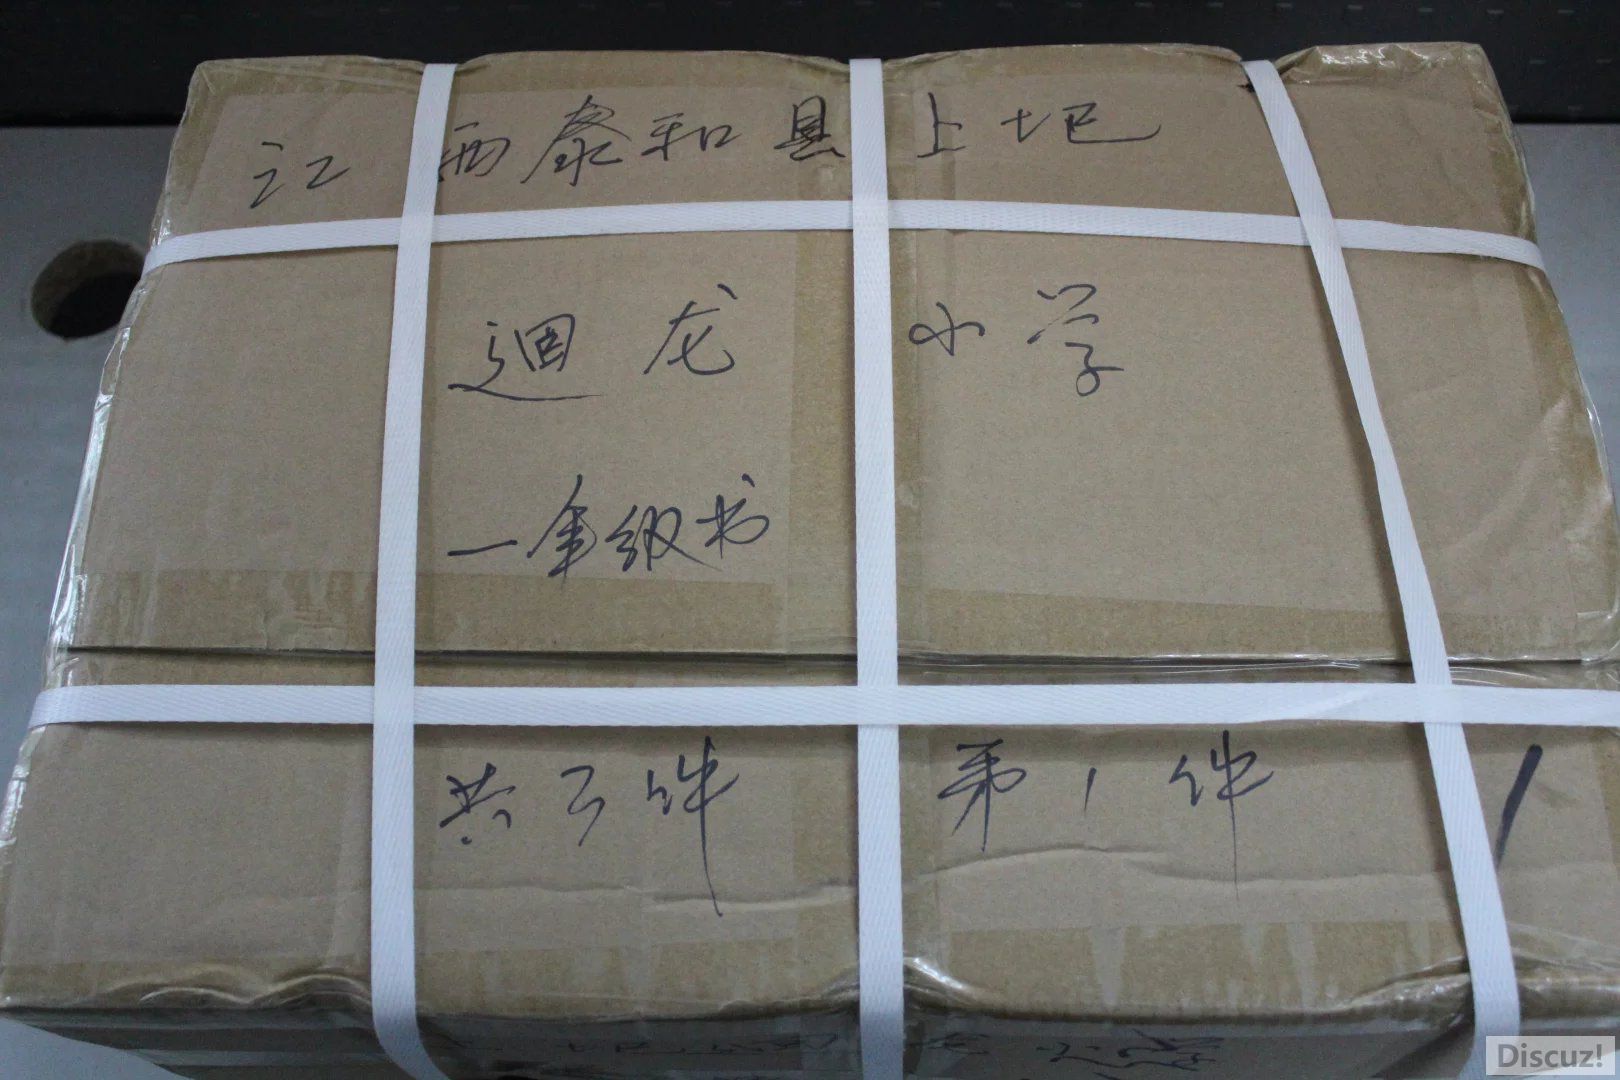 江西泰和县上圯
迴龙小学
一年级书
共3件 第1件 1
Discuz!